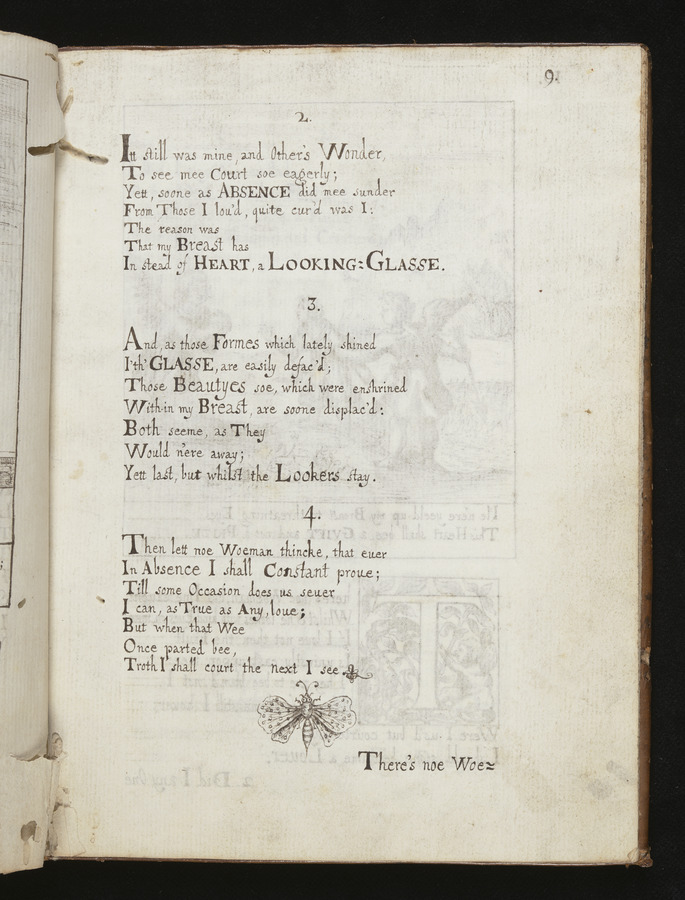 9.
2.
Itt still was mine, and Other's Wonder,
To see mee Court soe eagerly;
Yett, soone as ABSENCE did mee sunder
From Those I lou'd, quite cur'd was I:
The reason was
That my Breast has
In stead of HEART, a LOOKING=GLASSE.
3.
And, as those Formes which lately shined
I'th' GLASSE, are easily defac'd;
Those Beautyes soe, which were enshrined
With-in my Breast, are soone displac'd:
Both seeme, as They
Would n'ere away;
Yett last, but whilst the Lookers stay.
4.
Then lett noe Woeman thincke, that euer
In Absence I shall Constant proue;
Till some Occasion does us seuer
I can, as True as Any, loue;
But when that Wee
Once parted bee,
Troth I shall court the next I see
There's noe Woe=